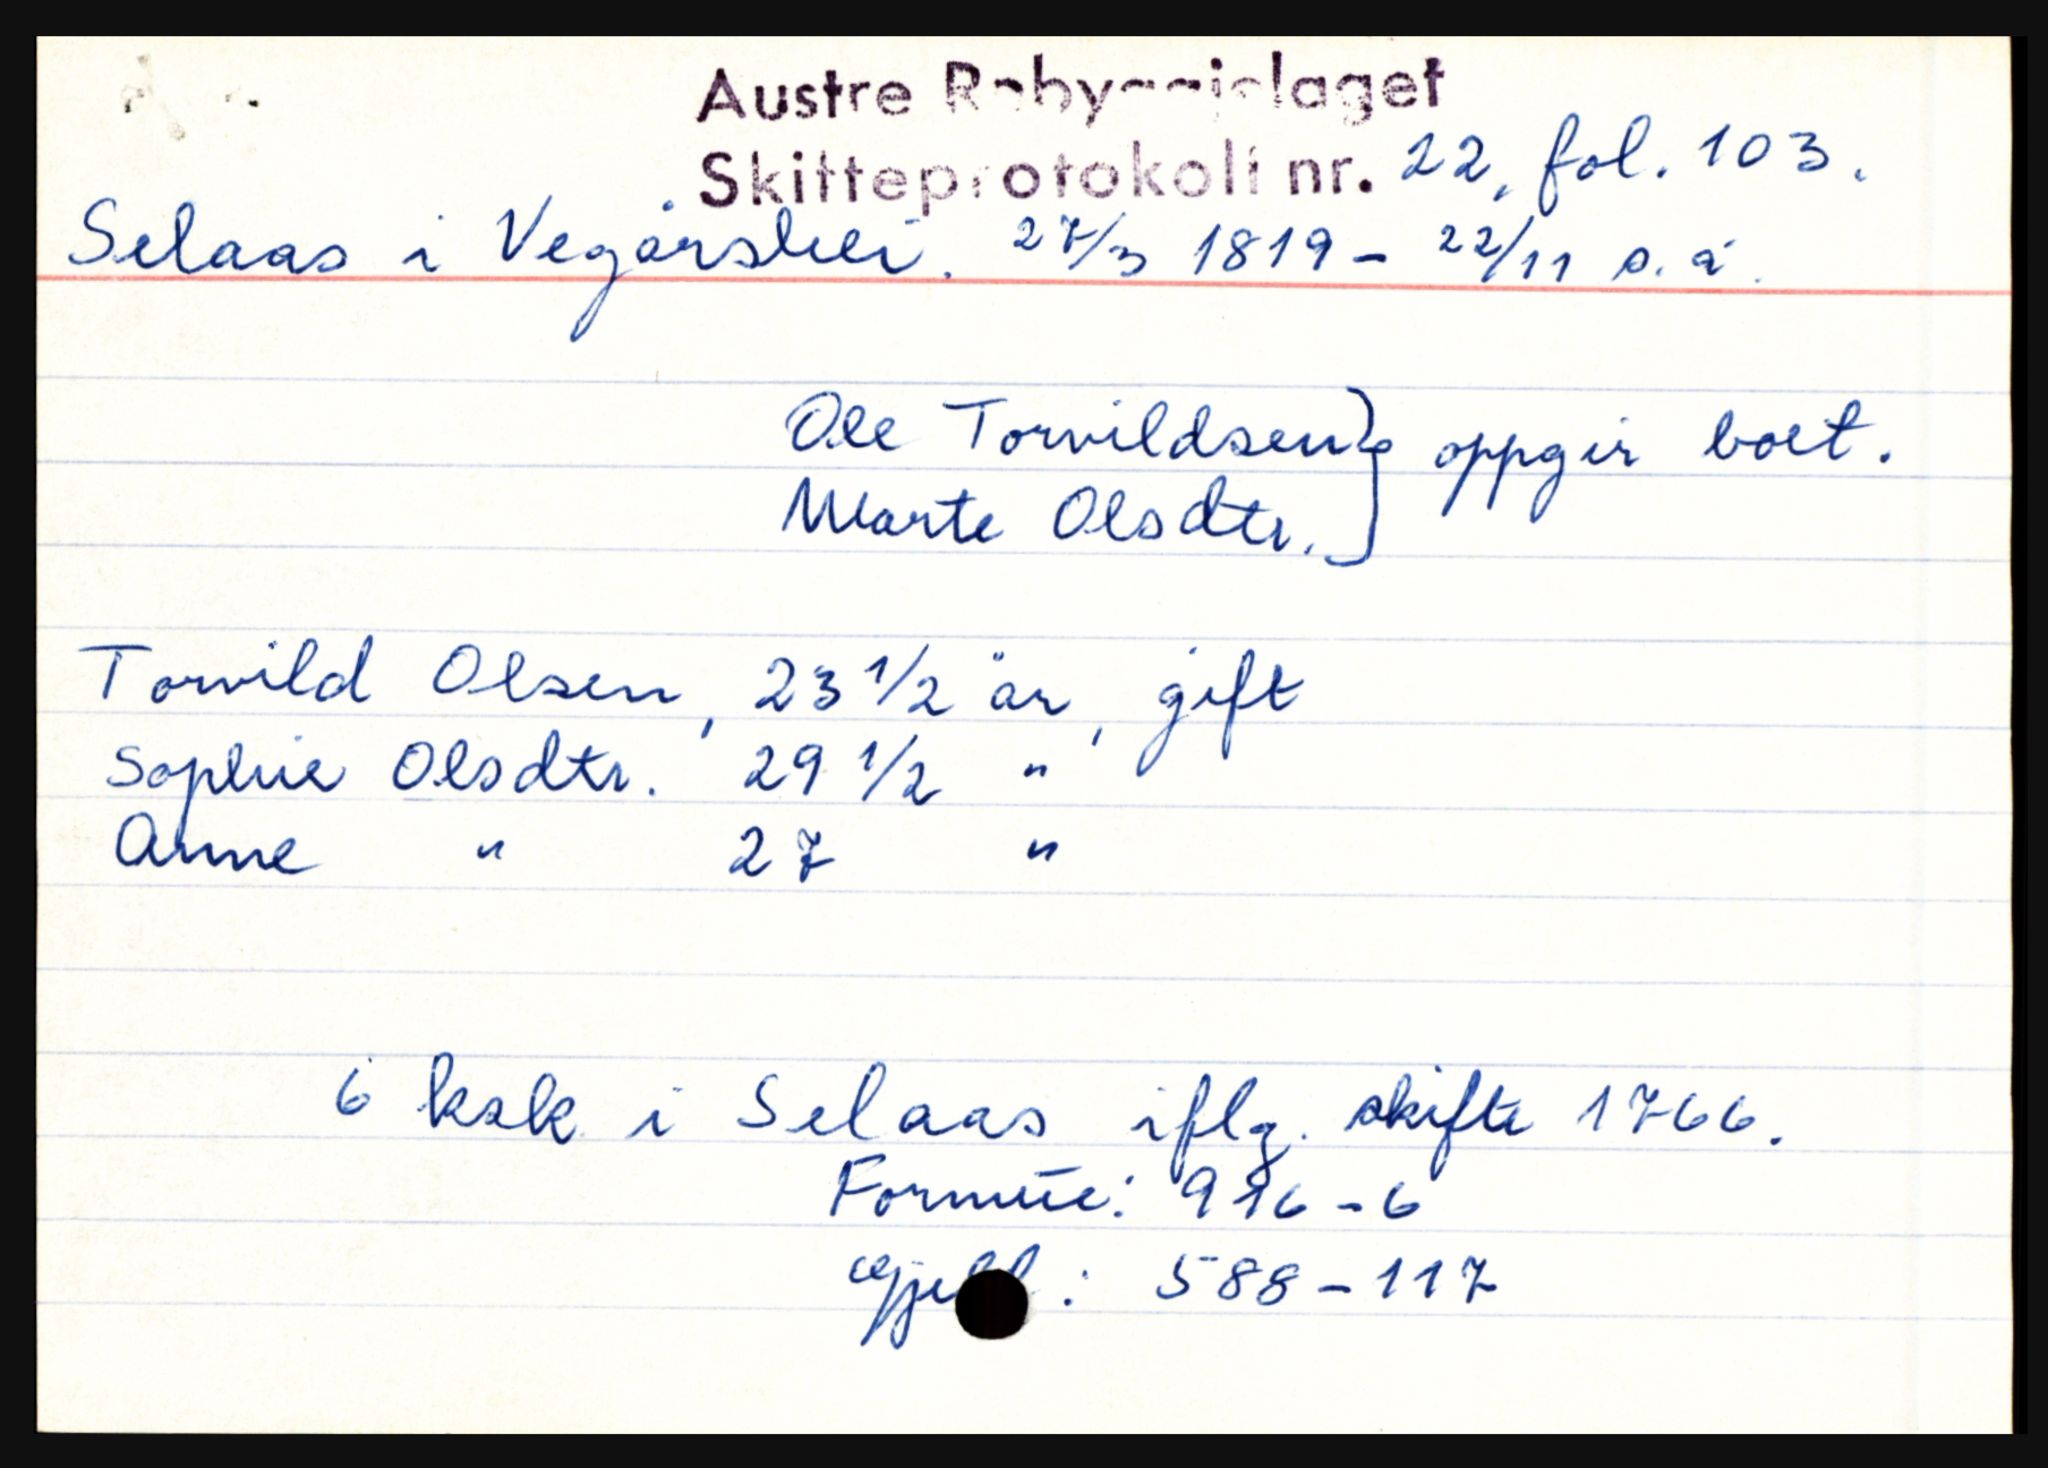 Austre Rabyggjelaget
Skifteprotokoll nr. 22, fol. 103.
Selaas i Vegårshei. 27/3 1819 - 22/11 s. å.
Ole Torvildsen } oppgir boet.
Marte Olsdtr.
Torvild Olsen, 23 1/2 år, gift
Sophie Olsdtr. 29 1/2 "
Anne " 27 "
6 ksk. i Selaas iflg. skifte 1766.
Formue: 916 - 6
Gjeld : 588 - 117